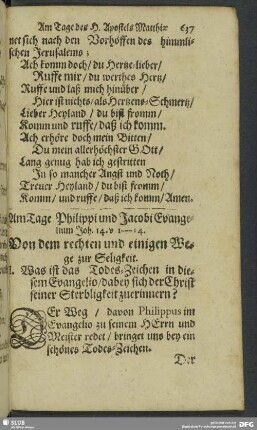 Am Tage des H. Apostels Matthiæ 637
net sich nach den Vorhöffen des himmli-
schen Jerusalems:
Ach komm doch/ du Hertze-lieber/
Ruffe mir/ du werthes Hertz/
Ruffe und laß mich hinüber/
Hier ist nichts/ als Hertzens-Schmertz/
Lieber Heyland/ du bist fromm/
Komm und ruffe/ daß ich komm.
Ach erhöre doch mein Bitten/
Du mein allerhöchster Gott/
Lang genug hab ich gestritten
In so mancher Angst und Noth/
Treuer Heyland/ du bist fromm/
Komm/ und ruffe/ daß ich komm/ Amen.
Am Tage Philippi und Jacobi Evange-
lium Joh. 14. v 1---14.
Von dem rechten und einigen We-
ge zur Seligkeit.
1. Was ist das Todes-Zeichen in die-
sem Evangelio/ dabey sich der Christ
seiner Sterbligkeit zuerinnern?
DEr Weg/ davon Philippus im
Evangelio zu seinem HErrn und
Meister redet/ bringet uns bey ein
schönes Todes-Zeichen.
Der
SLUB
DFG